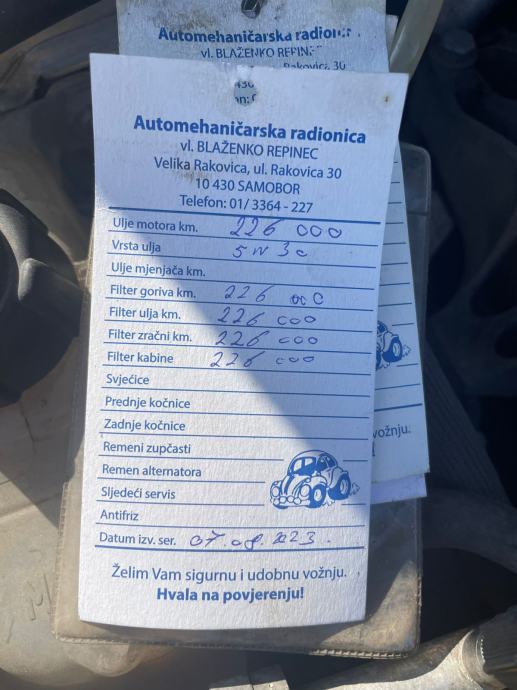 Automehaničarska radion
vl. BLAŽENKO REPIN
Rakovica, 30
Automehaničarska radionica
vl. BLAŽENKO REPINEC
Velika Rakovica, ul. Rakovica 30
10 430 SAMOBOR
Telefon: 01/ 3364 - 227
Ulje motora km. 226 000
Vrsta ulja 5W30
Ulje mjenjača km.
Filter goriva km. 226 000
Filter ulja km. 226 000
Filter zračni km. 226 000
Filter kabine 226 000
Svjećice
Prednje kočnice
Zadnje kočnice
Remeni zupčasti
Remen alternatora
Sljedeći servis
Antifriz
Datum izv. ser. 07.08.2023.
Želim Vam sigurnu i udobnu vožnju.
Hvala na povjerenju!
vožnju.